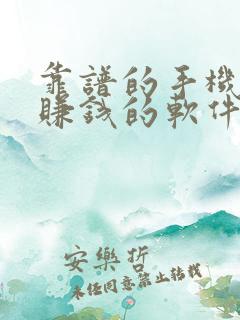 靠譜的手機
賺錢的軟件
安樂折
未经同意禁止转载